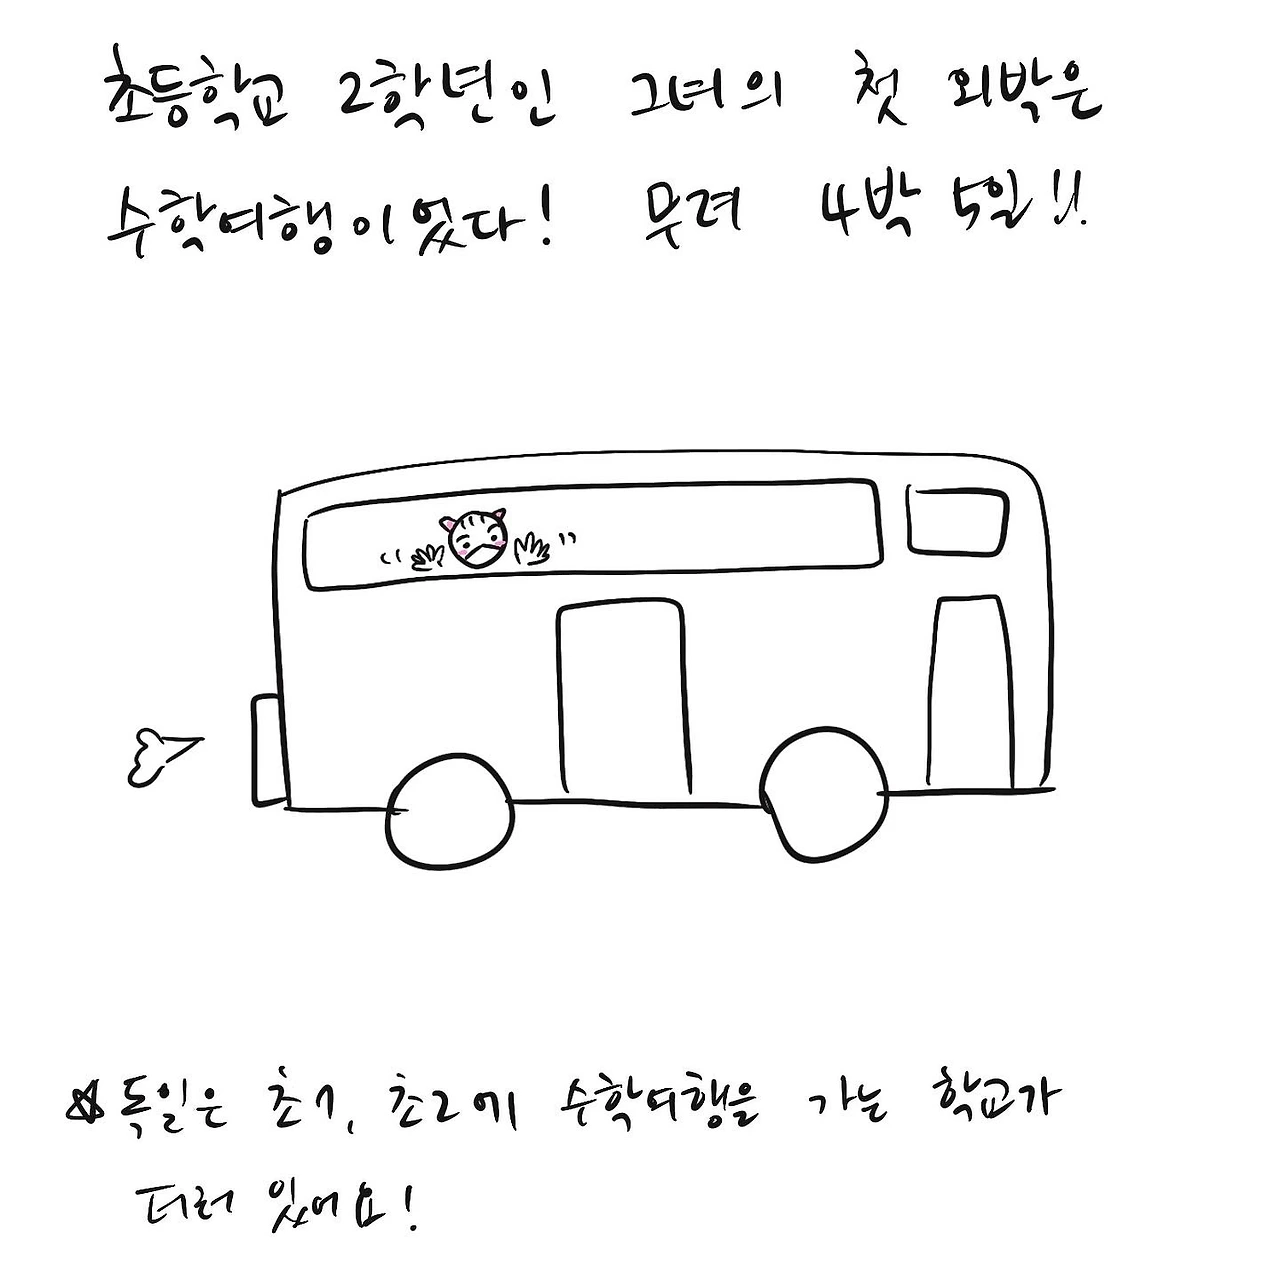 초등학교 2학년인 그녀의 첫 외박은
수학여행이었다! 무려 4박 5일!!
☆독일은 초1, 초2에 수학여행을 가는 학교가
더러 있어요!